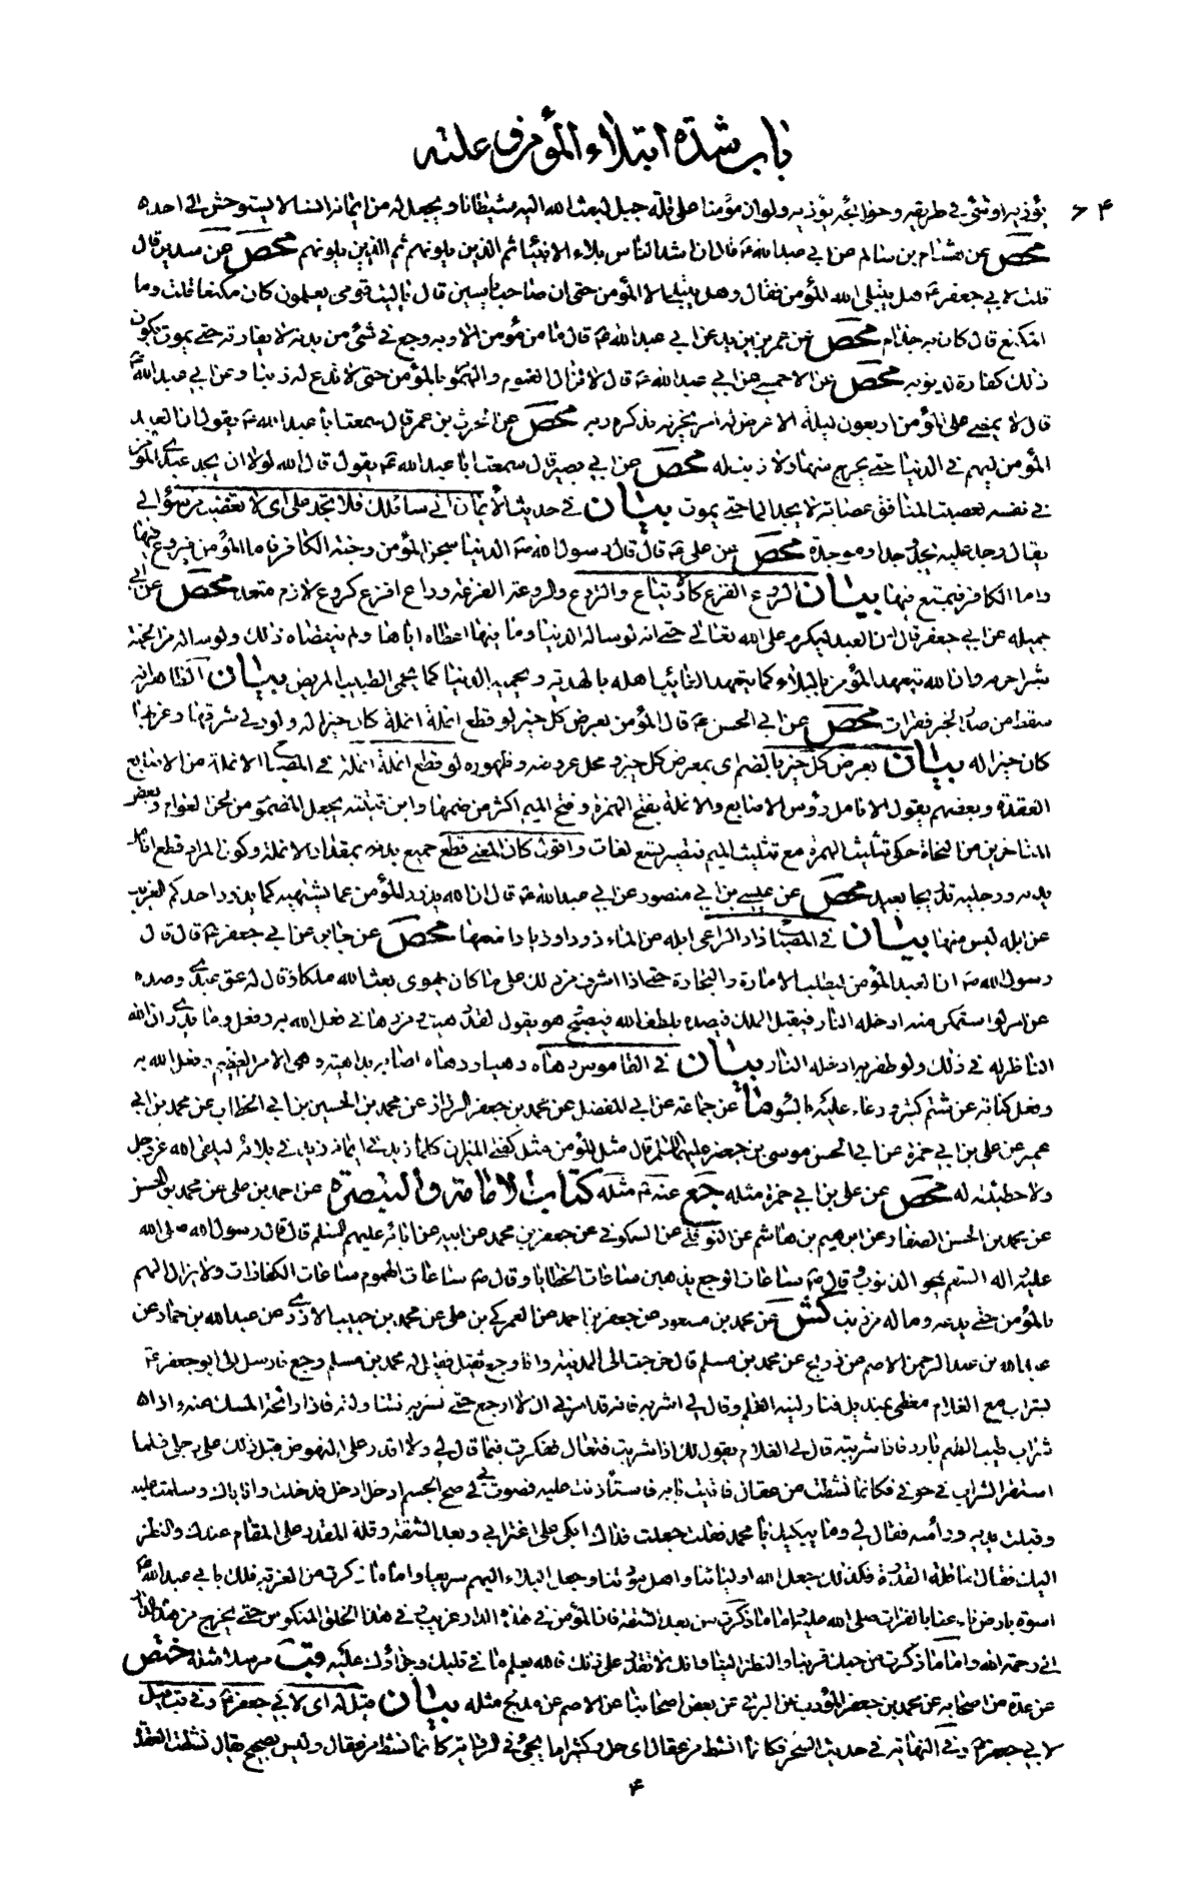 باب شدة ابتلاء المؤمن و علته
۶۴
يؤذيه او شئ في طريقه و حوائجه يؤذيه ولو ان مؤمنا على قلة جبل لبعث الله اليه شيطانا و يجعل له من ايمانه انسا لا يستوحش الى احد
محص عن هشام بن سالم عن ابي عبد الله ع قال ان اشد الناس بلاء الانبياء ثم الذين يلونهم ثم الذين يلونهم محص عن سدير قال
قلت لابي جعفر ع هل يبتلي الله المؤمن فقال و هل يبتلى الا المؤمن حتى ان صاحب يسين قال يا ليت قومي يعلمون كان مكنعا قلت و ما
المكنع قال كان به جذام محص عن عمر بن يزيد عن ابي عبد الله ع قال ما من مؤمن الا و به وجع في شئ من بدنه لا يفارقه حتى يموت يكون
ذلك كفارة لذنوبه محص عن الاحمسي عن ابي عبد الله ع قال لا تزال الغموم و الهموم بالمؤمن حتى لا تدع له ذنبا و عن ابي عبد الله ع
قال لا يمضي على المؤمن اربعون ليلة الا عرض له امر يحزنه يذكر به ربه محص عن الحرث بن عمر قال سمعت ابا عبد الله ع يقول ان العبد
المؤمن ليهم في الدنيا حتى يخرج منها و لا ذنب له محص عن ابي بصير قال سمعت ابا عبد الله ع يقول قال الله لولا ان يجد عبدي المؤمن
في نفسه لعصبت المنافق عصابة لا يجد الما حتى يموت بيان في حديث الايمان اني سائلك فلا تجد علي اى لا تغضب من سؤالي
يقال وجد عليه يجد وجدا و موجدة محص عن علي ع قال قال رسول الله ص الدنيا سجن المؤمن و جنة الكافر فاما المؤمن فيروع فيها
و اما الكافر فيمتع فيها بيان الروع الفزع كالارتياع و التروع و الروعة الفزعة و راع افزع كروع لازم متعد محص عن ابي
جميلة عن ابي جعفر قال ان العبد ليكرم على الله تعالى حتى انه لو ساله الدنيا و ما فيها اعطاه اياها و لم ينقصه ذلك و لو ساله من الجنة
شبرا حرمه و ان الله يتعهد المؤمن بالبلاء كما يتعهد الغائب اهله بالهدية و يحميه الدنيا كما يحمي الطبيب المريض بيان الظاهر انه
سقط من صدر الخبر فقرات محص عن ابي الحسن ع قال المؤمن بعرض كل خير لو قطع انملة انملة كان خيرا له و لو ولي شرقها و غربها
كان خيرا له بيان بعرض كل خير بالضم اى بمعرض كل خير و محل عروضه و ظهوره لو قطع انملة انملة في المصباح الانملة من الاصابع
العقدة و بعضهم يقول الانامل رؤس الاصابع و الانملة بفتح الهمزة و فتح الميم اكثر من ضمها و ابن قتيبة يجعل الضم من لحن العوام و بعض
المتاخرين من النحاة حكى تثليث الهمزة مع تثليث الميم فيصير تسع لغات و اقول كان المعنى قطع جميع بدنه بمقدار الانملة و كون المراد قطع انامل
يديه و رجليه تدريجا بعيد محص عن عيسى بن ابي منصور عن ابي عبد الله ع قال ان الله يذود المؤمن عما يشتهيه كما يذود احدكم الغريب
عن ابله ليس منها بيان في المصباح ذاد الراعي ابله عن الماء ذودا و ذيادا منعها محص عن جابر عن ابي جعفر ع قال قال
رسول الله ص ان العبد المؤمن ليطلب الامارة و التجارة حتى اذا اشرف من ذلك على ما كان يهوى بعث الله ملكا و قال له عق عبدي و صده
عن امر لو استمكن منه ادخله النار فيقبل الملك فيصده بلطف الله فيصبح و هو يقول لقد دهيت و من دهاني فعل الله به و فعل و ما يدري ان الله
الناظر له في ذلك و لو ظفر به ادخله النار بيان في القاموس دهاه دهيا و دهاه اصابه بداهية و هي الامر العظيم و فعل الله به
و فعل كناية عن شتم كثير و دعاء عليه بالسوء ما عن جماعة عن ابي المفضل عن محمد بن جعفر الرزاز عن محمد بن الحسين بن ابي الخطاب عن محمد بن ابي
عمير عن علي بن ابي حمزة عن ابي الحسن موسى بن جعفر عليهما السلم قال مثل المؤمن مثل كفتي الميزان كلما زيد في ايمانه زيد في بلائه ليلقى الله عز و جل
و لا خطيئة له محص عن علي بن ابي حمزة مثله جع عنه ع مثله كتاب الامامة و التبصرة عن احمد بن علي عن محمد بن الحسن
عن محمد بن الحسن الصفار عن ابراهيم بن هاشم عن النوفلي عن السكوني عن جعفر بن محمد عن ابيه عن ابائه عليهم السلم قال قال رسول الله صلى الله
عليه و اله السقم يمحو الذنوب و قال ص ساعات الوجع يذهبن ساعات الخطايا و قال ص ساعات الهموم ساعات الكفارات و لا يزال الهم
بالمؤمن حتى يدعه و ما له من ذنب كش عن محمد بن مسعود عن جعفر بن احمد عن العمركي بن علي عن محمد بن حبيب الازدي عن عبد الله بن حماد عن
عبد الله بن عبد الرحمن الاصم عن ذريح عن محمد بن مسلم قال خرجت الى المدينة و انا وجع ثقيل فقيل له محمد بن مسلم وجع فارسل الى ابو جعفر ع
بشراب مع الغلام مغطى بمنديل فناولنيه الغلام و قال لي اشربه فانه قد امرني ان لا ارجع حتى تشربه فتناولته فاذا رائحة المسك منه و اذا
شراب طيب الطعم بارد فاذا شربته قال لي الغلام يقول لك اذا شربت فتعال ففكرت فيما قال لي و لا اقدر على النهوض قبل ذلك على رجلي فلما
استقر الشراب في جوفي فكانما نشطت من عقال فاتيت بابه فاستأذنت عليه فصوت بي صح الجسم ادخل ادخل فدخلت و انا باك و سلمت عليه
و قبلت يده و راسه فقال لي و ما يبكيك يا محمد فقلت جعلت فداك ابكي على اغترابي و بعد الشقة و قلة المقدرة على المقام عندك و النظر
اليك فقال اما قلة القدرة فكذلك جعل الله اوليائنا و اهل مودتنا و جعل البلاء اليهم سريعا و اما ما ذكرت من الغربة فلك بابي عبد الله ع
اسوة بارض ناء عنا بالفرات صلى الله عليه و اما ما ذكرت من بعد الشقة فان المؤمن في هذه الدار غريب و في هذا الخلق المنكوس حتى يخرج من هذه الدار
الى رحمة الله و اما ما ذكرت من حبك قربنا و النظر الينا و انك لا تقدر على ذلك فالله يعلم ما في قلبك و جزاؤك عليه قب مرسلا مثله ختص
عن عدة من اصحابه عن محمد بن جعفر المؤدب عن البرقي عن بعض اصحابنا عن الاصم عن مدلج مثله بيان قيل له اى لابي جعفر ع و في قب قيل
لابي جعفر ع و في النهاية في حديث السحر فكانما انشط من عقال اى حل و كثيرا ما يجئ في الرواية كانما نشط من عقال و ليس بصحيح يقال نشطت العقدة
۴